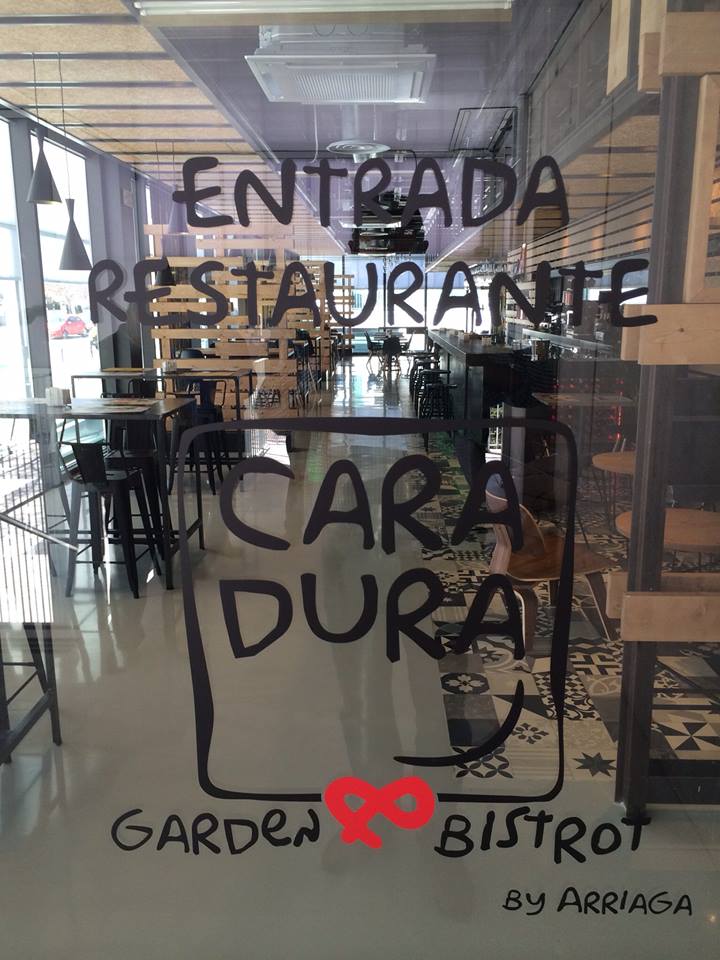 ENTRADA
RESTAURANTE
CARA
DURA
GARDEN BISTROT
BY ARRIAGA